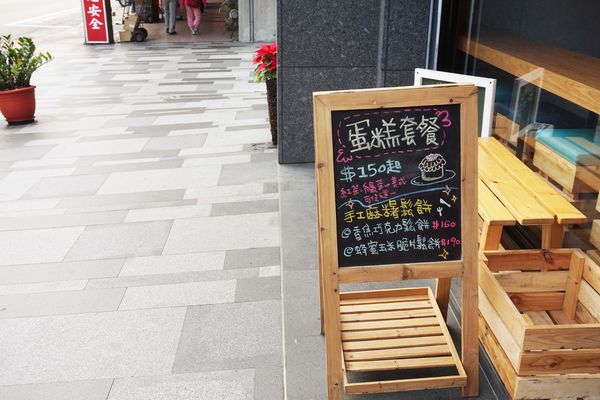 安全
蛋糕套餐
$150起
紅茶、綠茶、美式
可任選一
手工麻糬鬆餅
@香蕉巧克力鬆餅$160
@蜂蜜玉米脆片鬆餅$190